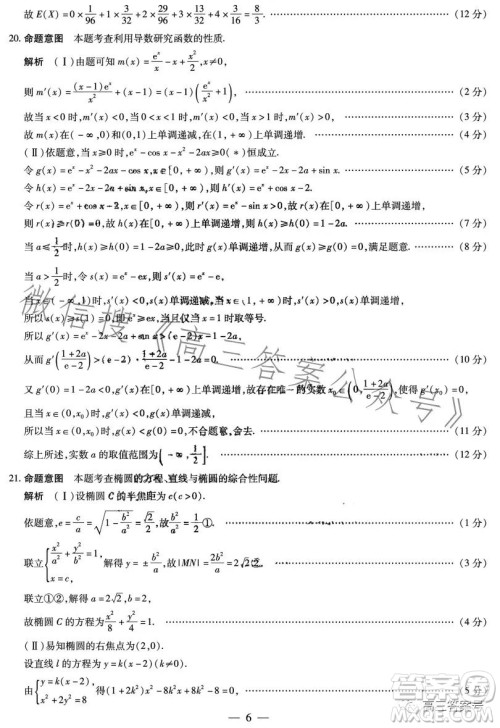 故 E(X)=0×1/96+1×3/32+2×9/32+3×1/6+4×9/32=8/3. (12 分)
20. 命题意图 本题考查利用导数研究函数的性质.
解析 (Ⅰ)由题可知 m(x)=e^x/x-x+x²/2,x≠0,
则 m′(x)=(x-1)e^x/x²+x-1=(x-1)(e^x/x²+1), (2 分)
故当 x<0 时,m′(x)<0,当 0<x<1 时,m′(x)<0,当 x>1 时,m′(x)>0, (4 分)
故 m(x)在(-∞,0)和(0,1)上单调递减,在(1,+∞)上单调递增. (5 分)
(Ⅱ)依题意,当 x≥0 时,e^x-cos x-x²-2ax≥0(*)恒成立.
令 g(x)=e^x-x²-2ax-cos x,x∈[0,+∞),则 g′(x)=e^x-2x-2a+sin x, (6 分)
令 h(x)=e^x-2x-2a+sin x,x∈[0,+∞),则 h′(x)=e^x-2+cos x,
令 r(x)=e^x-2+cos x,x∈[0,+∞),则 r′(x)=e^x-sin x>0,故 r(x)在[0,+∞)上单调递增,
则 r(x)≥r(0)=0,故 h(x)在[0,+∞)上单调递增,则 h(x)≥h(0)=1-2a. (7 分)
当 a≤1/2时,h(x)≥h(0)=1-2a≥0,此时 g(x)单调递增,从而 g(x)≥g(0)=0,满足题意. (8 分)
当 a>1/2时,令 s(x)=e^x-ex,则 s′(x)=e^x-e,
当 x∈(-∞,1)时,s′(x)<0,s(x)单调递减,当 x∈(1,+∞)时,s′(x)>0,s(x)单调递增,
所以 s(x)≥s(1)=0,即 e^x≥ex,当且仅当 x=1 时取等号.
所以当 x>0 时,g′(x)=e^x-2x-2a+sin x>(e-2)x-1-2a,
从而 g′((1+2a)/(e-2))>(e-2)·(1+2a)/(e-2)-1-2a=0, (10 分)
又 g′(0)=1-2a<0,g′(x)在[0,+∞)上单调递增,故存在唯一的实数x₀∈(0,(1+2a)/(e-2)),使得 g′(x₀)=0,
且当 x∈(0,x₀)时,g(x)单调递减,
所以当 x∈(0,x₀)时,g(x)<g(0)=0,不合题意,舍去. (11 分)
综上所述,实数 a 的取值范围为(-∞,1/2]. (12 分)
21. 命题意图 本题考查椭圆的方程、直线与椭圆的综合性问题.
解析 (Ⅰ)设椭圆 C 的半焦距为 c(c>0).
依题意,e=c/a=√(1-b²/a²)=√2/2,故b²/a²=1/2①. (1 分)
联立{x²/a²+y²/b²=1, x=c, 解得 y=±b²/a,故|MN|=2b²/a=2√2②. (2 分)
联立①②,解得 a=2√2,b=2,
故椭圆 C 的方程为x²/8+y²/4=1. (4 分)
(Ⅱ)易知椭圆的右焦点为(2,0).
设直线 l 的方程为 y=k(x-2),
由{y=k(x-2), x²+2y²=8, 得(1+2k²)x²-8k²x+8k²-8=0, (5 分)
— 6 —
微信搜《高三答案公众号》
高三答案号